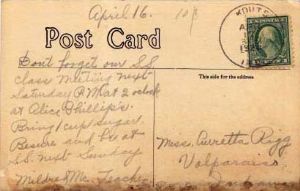 April 16.
Post Card
KOUTS
Don't forget our S.S.
class Meeting next
Saturday P.M. at 2 oclock
at Alice Phillip's.
Bring 1 cup sugar.
Be sure and be at
S.S. next Sunday
Mildred Mc. Teacher
This side for the address.
Miss. Rigg
Valparaiso
Indiana